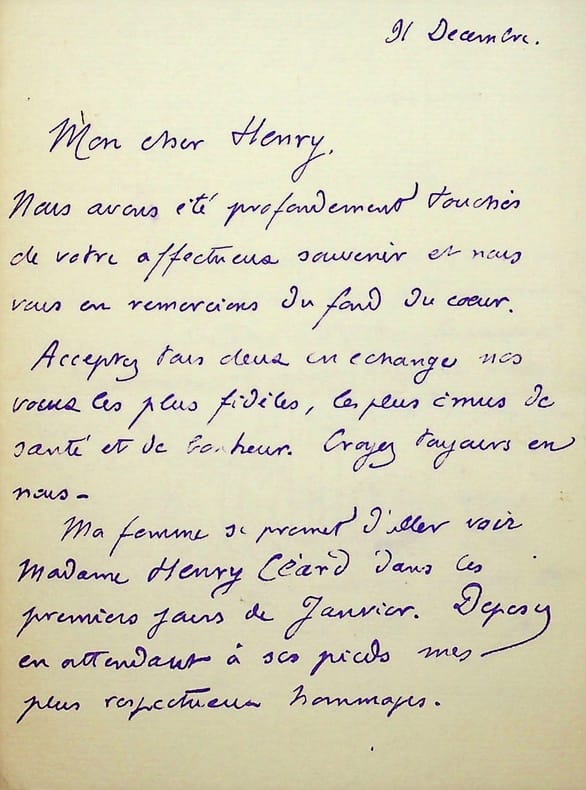 31 Decembre.
Mon cher Henry,
Nous avons été profondement touchés
de votre affectueux souvenir et nous
vous en remercions du fond du coeur.
Acceptez tous deux en echange nos
voeux les plus fidèles, les plus émus de
santé et de bonheur. Croyez toujours en
nous -
Ma femme se promet d'aller voir
Madame Henry Céard dans les
premiers jours de Janvier. Deposez
en attendant à ses pieds mes
plus respectueux hommages.